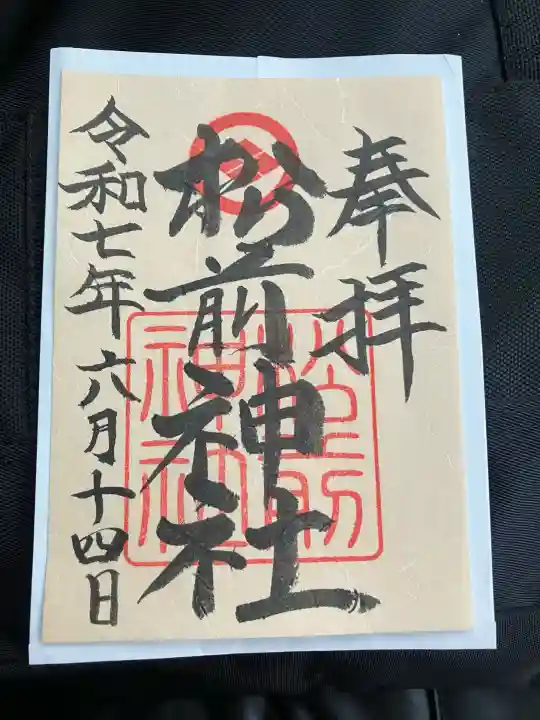 奉拝
松前神社
松前
神社
令和七年六月十四日